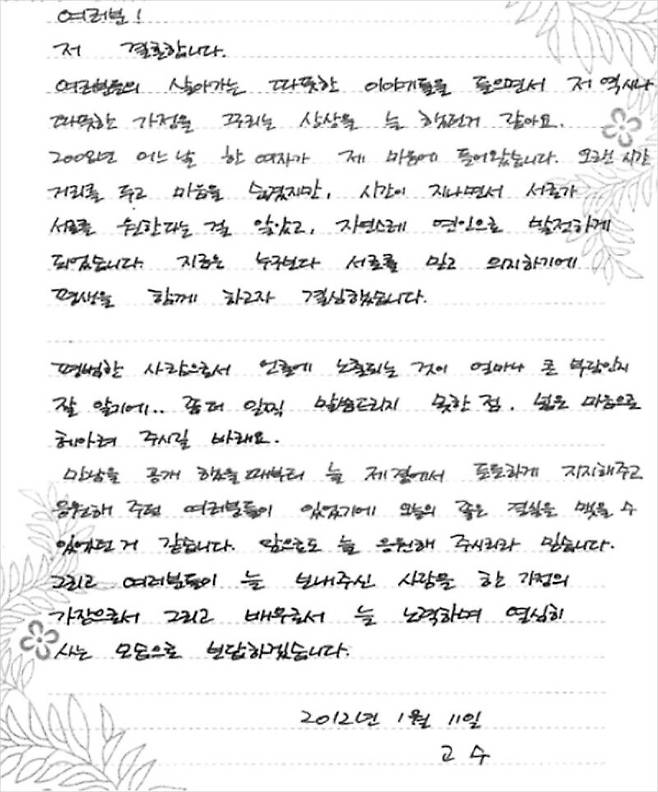 여러분!
저 결혼합니다.
여러분들의 살아가는 따뜻한 이야기들을 들으면서 저 역시나
따뜻한 가정을 꾸리는 상상을 늘 했던거 같아요.
2008년 어느 날 한 여자가 제 마음에 들어왔습니다. 오랜 시간
거리를 두고 마음을 숨겼지만, 시간이 지나면서 서로가
서로를 원한다는 걸 알았고, 자연스레 연인으로 발전하게
되었습니다. 지금은 누구보다 서로를 믿고 의지하기에
평생을 함께 하고자 결심했습니다.
평범한 사람으로서 언론에 노출되는 것이 얼마나 큰 부담인지
잘 알기에.. 좀더 일찍 말씀드리지 못한 점, 넓은 마음으로
헤아려 주시길 바래요.
만남을 공개 했을때부터 늘 제 곁에서 토토하게 지지해주고
응원해 주던 여러분들이 있었기에 오늘의 좋은 결실을 맺을 수
있었던거 같습니다. 앞으로도 늘 응원해 주시리라 믿습니다.
그리고 여러분들이 늘 보내주신 사랑을 한 가정의
가장으로서 그리고 배우로서 늘 노력하며 열심히
사는 모습으로 보답하겠습니다.
2012년 1월 11일
고 수